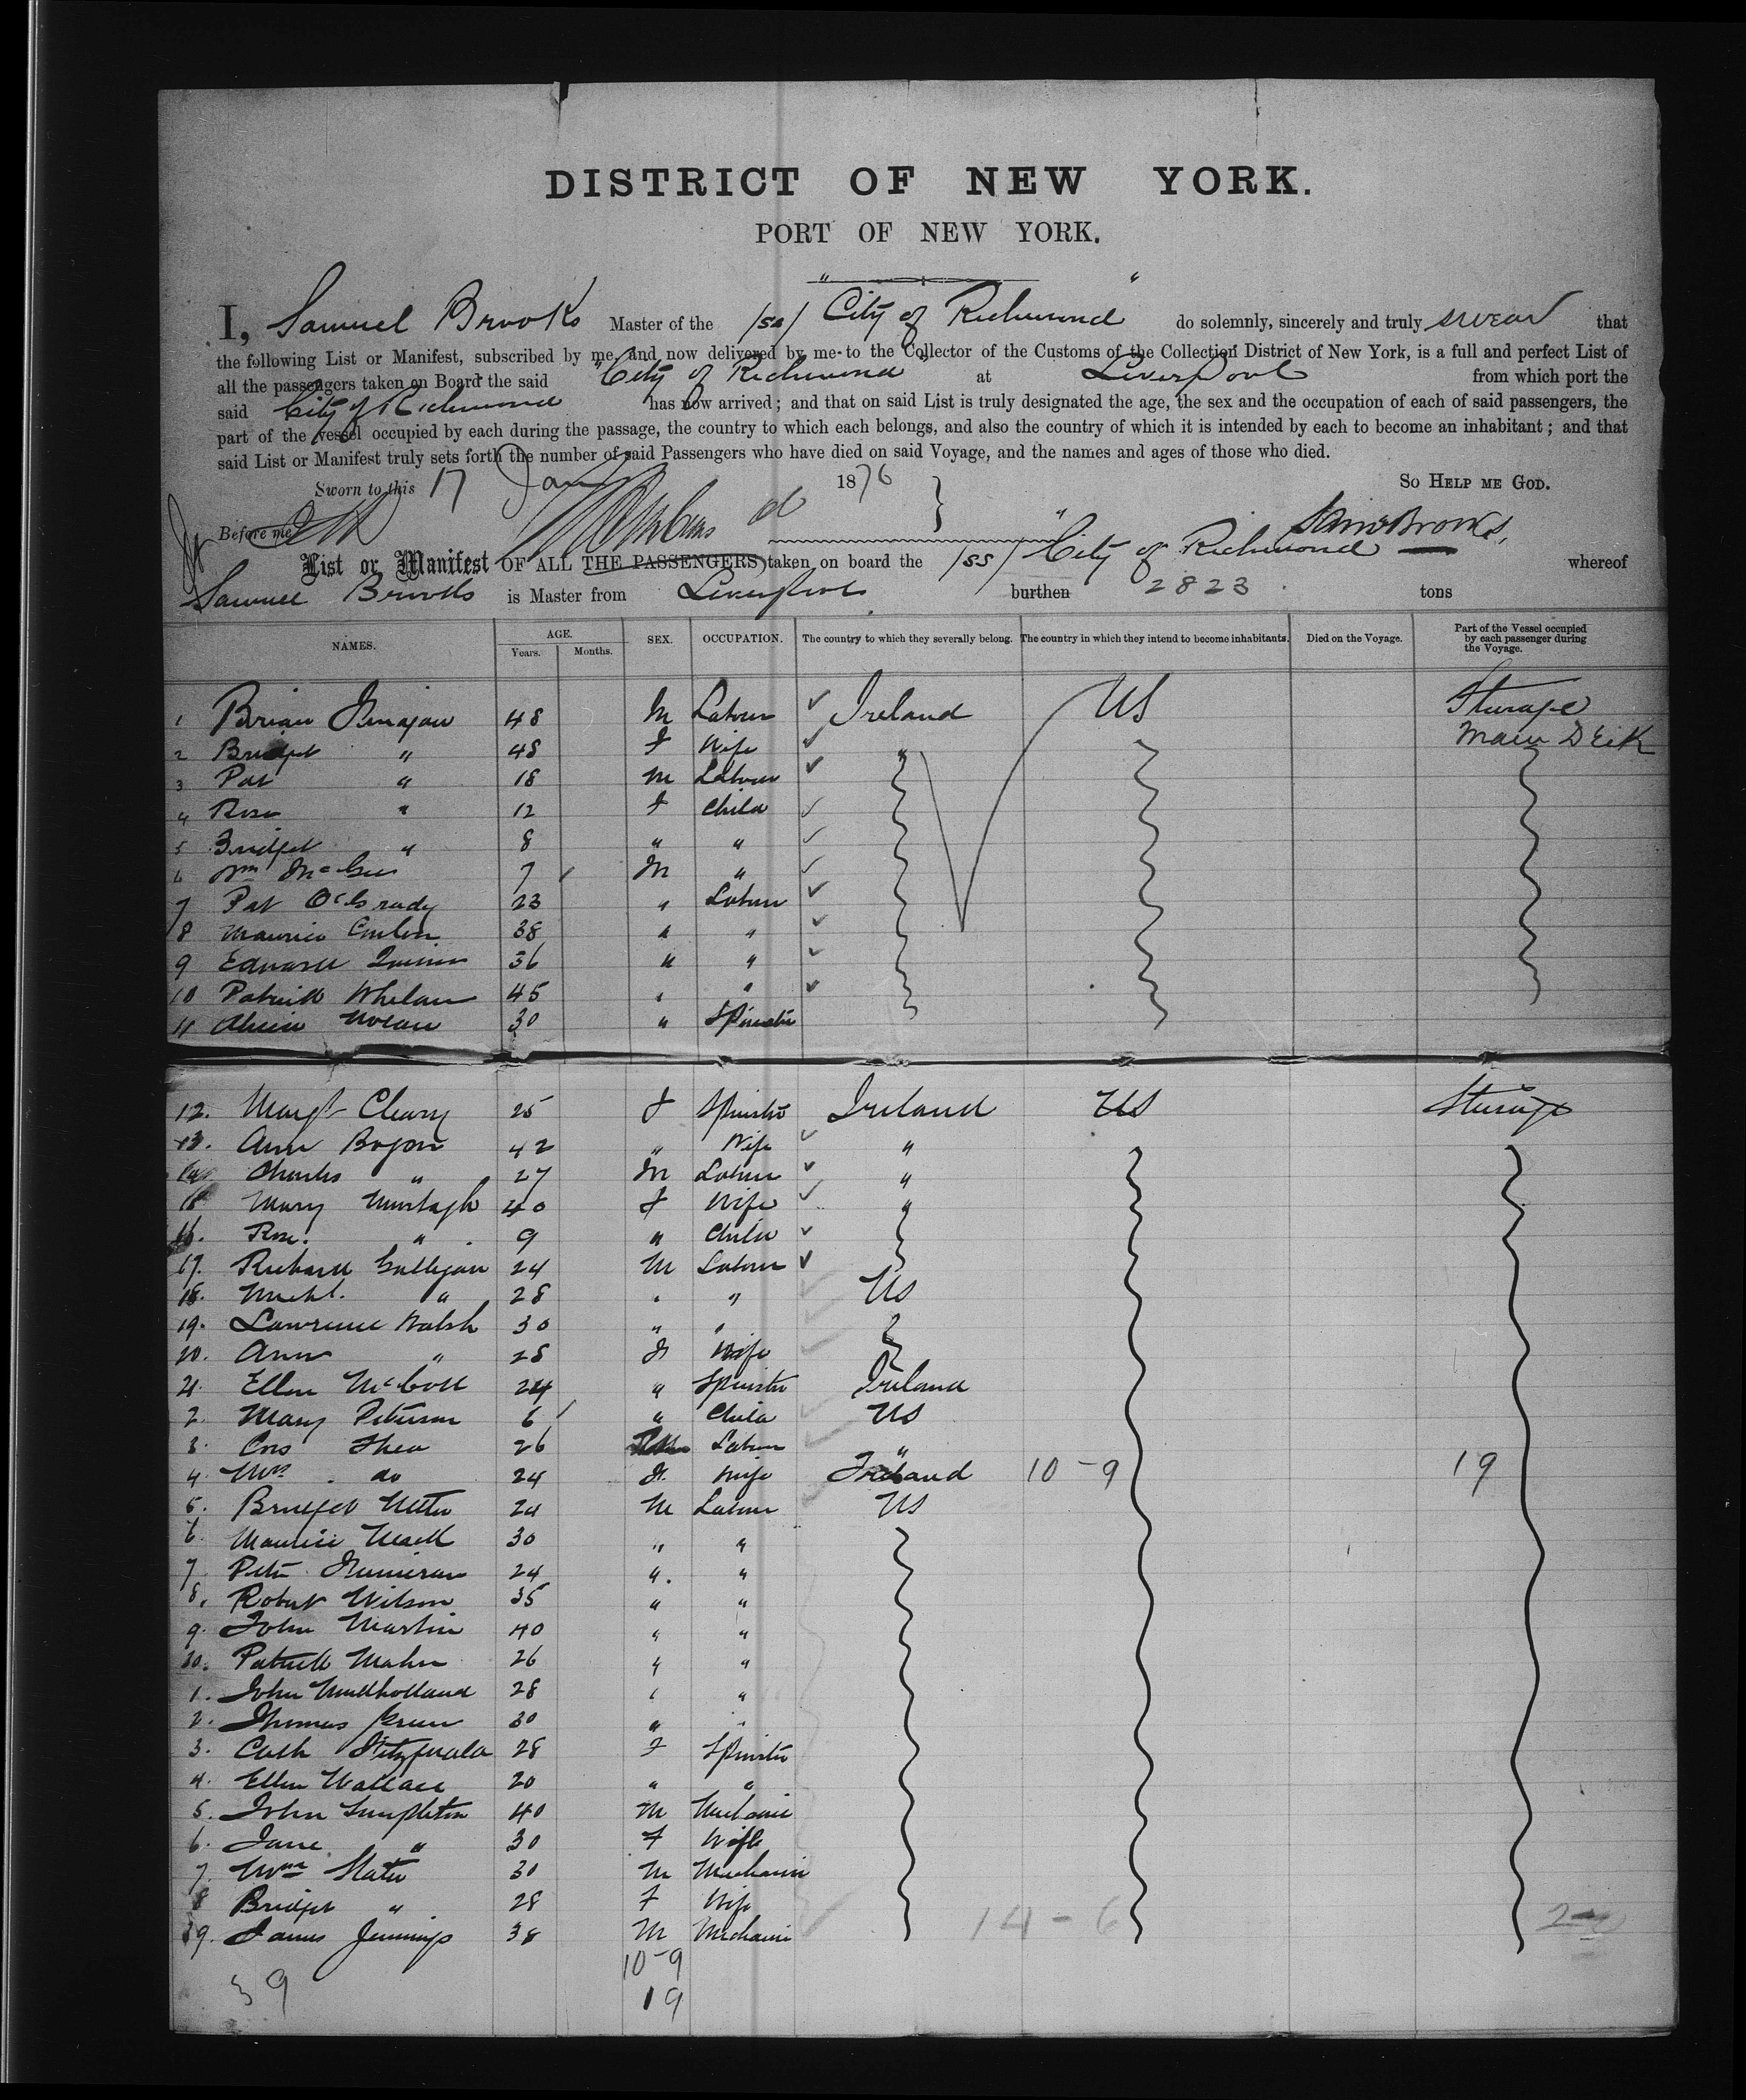 DISTRICT OF NEW YORK.
PORT OF NEW YORK.
I, Samuel Brooks Master of the /ss/ "City of Richmond" do solemnly, sincerely and truly swear that
the following List or Manifest, subscribed by me, and now delivered by me to the Collector of the Customs of the Collection District of New York, is a full and perfect List of
all the passengers taken on Board the said "City of Richmond at Liverpool from which port the
said City of Richmond has now arrived; and that on said List is truly designated the age, the sex and the occupation of each of said passengers, the
part of the vessel occupied by each during the passage, the country to which each belongs, and also the country of which it is intended by each to become an inhabitant; and that
said List or Manifest truly sets forth the number of said Passengers who have died on said Voyage, and the names and ages of those who died.
Sworn to this 17 Jany 1876 So HELP ME GOD.
Before me Saml Brooks,
List or Manifest OF ALL THE PASSENGERS taken on board the /ss/ "City of Richmond whereof
Samuel Brooks is Master from Liverpool burthen 2823 tons
NAMES. AGE. Years. Months. SEX. OCCUPATION. The country to which they severally belong. The country in which they intend to become inhabitants. Died on the Voyage. Part of the Vessel occupied by each passenger during the Voyage.
1 Brian 48 M Labour Ireland US Sturage
2 Bridget " 48 F Wife " Main Deck
3 Pat " 18 M Labour
4 Rose " 12 F Child
5 Bridget " 8 " "
6 Wm McGee 7 M "
7 Pat OcGrady 23 " Labour
8 Maurice 38 " "
9 Edward Quinn 36 " "
10 Patrick Whelan 45 " "
11 Nolan 30 " Spinster
12. Margt Cleary 25 F Spinster Ireland US Sturage
13. Ann Bogan 42 " Wife "
14 Charles " 27 M Labour "
15 Mary Murtagh 40 F Wife "
16. Rose. " 9 " Child
17. Richard Galligan 24 M Labour
18. Michl. " 28 " " US
19. Lawrence Walsh 30 " "
20. Ann " 28 F Wife
21. Ellen 24 " Spinster Ireland
2. Mary Peterson 6 " Child US
3. Cors Shea 26 Labour "
4. Mrs. do 24 F. Wife Ireland 10-9 19
5. Bridget 24 M Labour US
6. Maurice Mack 30 " "
7. Peter 24 " "
8. Robert Wilson 35 " "
9. John Martin 40 " "
30. Patrick Maher 26 " "
1. John Mullholland 28 " "
2. Thomas Green 30 " "
3. Cath Fitzgerald 28 F Spinster
4. Ellen Wallace 20 " "
5. John Templeton 40 M Mechanic
6. Jane " 30 F Wife
7. Wm Slater 30 M Mechanic
8 Bridget " 28 F Wife
39. James Jennings 38 M Mechanic 14-6
10-9
39 19